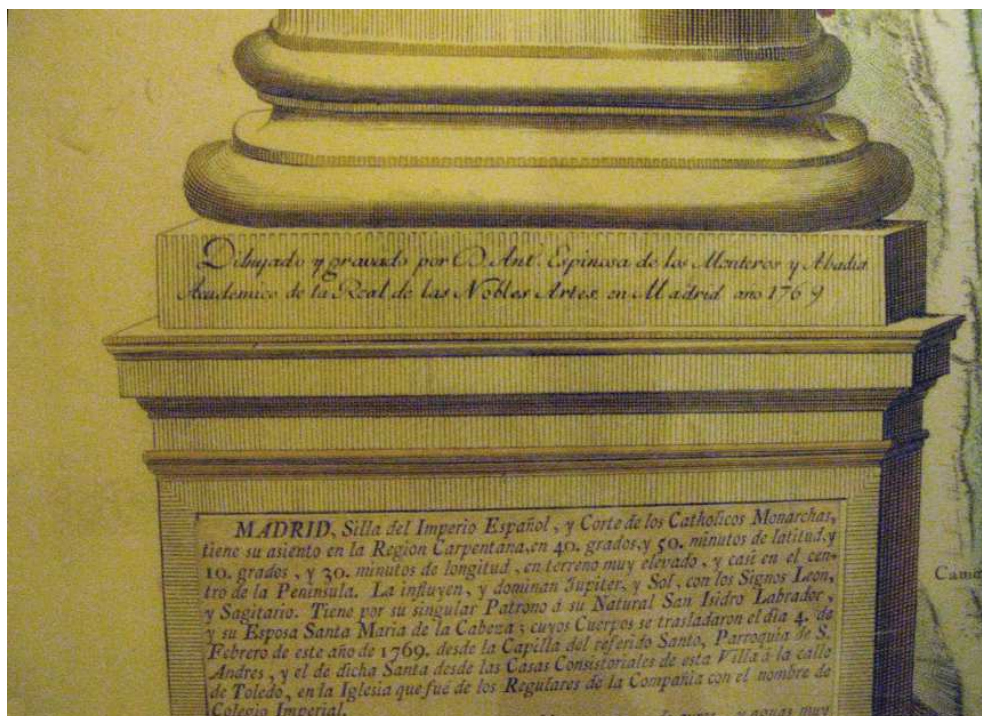 Dibujado y gravado por D. Antº. Espinosa de los Monteros y Abadia
Academico de la Real de las Nobles Artes, en Madrid año 1769
MADRID, Silla del Imperio Español, y Corte de los Catholicos Monarchas,
tiene su asiento en la Region Carpentana, en 40. grados, y 50. minutos de latitud, y
10. grados, y 30. minutos de longitud, en terreno muy elevado, y casi en el cen-
tro de la Peninsula. La influyen, y dominan Jupiter, y Sol, con los Signos Leon,
y Sagitario. Tiene por su singular Patrono á su Natural San Isidro Labrador,
y su Esposa Santa Maria de la Cabeza; cuyos Cuerpos se trasladaron el dia 4. de
Febrero de este año de 1769. desde la Capilla del referido Santo, Parroquia de S.
Andres, y el de dicha Santa desde las Casas Consistoriales de esta Villa á la calle
de Toledo, en la Iglesia que fué de los Regulares de la Compañia con el nombre de
Colegio Imperial.
y aguas muy
Cam